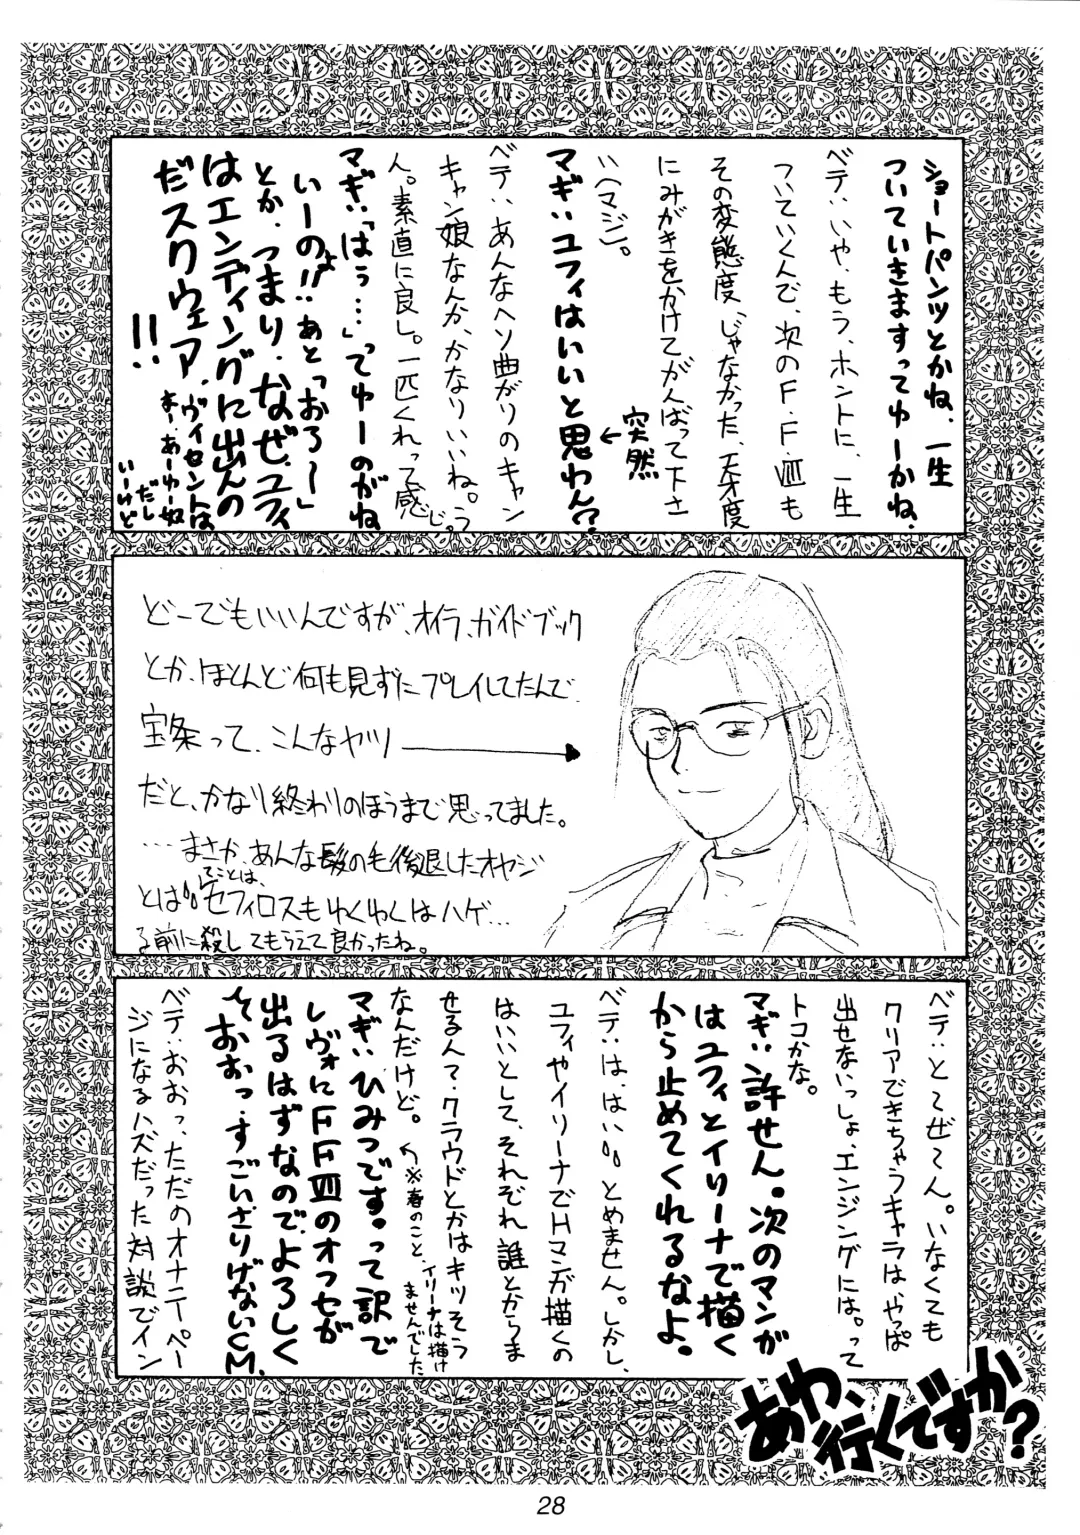 ショートパンツとかね、一生
ついていきますってゆーかね、
ベテ:いや、もう、ホントに、一生
ついていくんで、次のF.F.Ⅷも
その変態度、じゃなかった、天才度
にみがきをかけてがんばって下さ
い(マジ)。
マギ:ユフィはいいと思わん?
←突然
ベテ:あんなヘソ曲がりのキャン
キャン娘なんか、かなりいいね。う
ん。素直に良し。一匹くれって感じ。
マギ:「はぅ…」てゆーのがね
いーのよ!!あと「おろ〜」
とか、つまり、なぜユフィ
はエンディングに出んの
だスクウェア!!
ヴィセントは
まー、あーゆー奴
だし
いーけど
どーでもいいんですが、オイラ、ガイドブック
とか、ほとんど何も見ずにプレイしてたんで、
宝条って、こんなヤツ
だと、かなり終わりのほうまで思ってました。
…まさか、あんな髪の毛後退したオヤジ
とは‥てことは、セフィロスもゆくゆくはハゲ…
る前に殺してもらえて良かったね。
ベテ:と〜ぜ〜ん。いなくても
クリアできちゃうキャラは、やっぱ
出せないっしょ、エンジングには。って
トコかな。
マギ:許せん。次のマンガ
はユフィとイリーナで描く
から止めてくれるなよ。
ベテ:は、はい‥とめません。しかし、
ユフィやイリーナでHマンガ描くの
はいいとして、それぞれ誰とからま
せるんで?クラウドとかはキツそう
なんだけど。
※春のこと、イリーナは描け
ませんでした
マギ:ひみつです。って訳で
レヴォにFFⅦのオフセが
出るはずなのでよろしく
ておおっ、すごいさりげないCM。
ベテ:おおっ、ただのオナニーペー
ジになるハズだった対談でイン
あわ、行くですか?
28